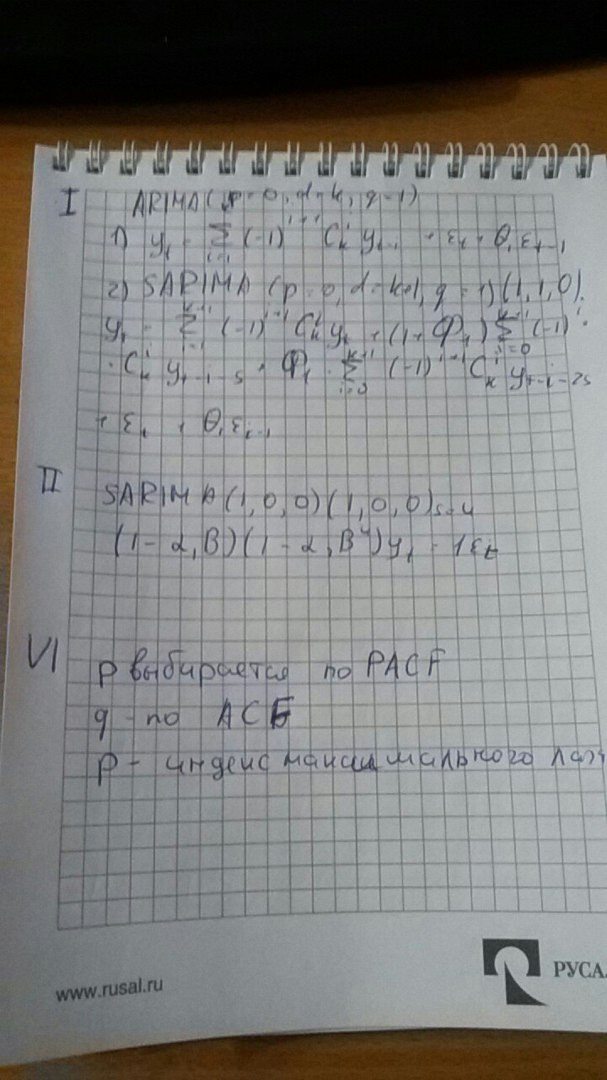 I ARIMA(p=0; d=k; q=1)
1) y_t = Σ (-1)^{i+1} C_k^i y_{t-i} + ε_t + θ_1 ε_{t-1}
2) SARIMA (p=0, d=k+1, q=1)(1,1,0)
y_t = Σ (-1)^{i+1} C_k^i y_t + (1+Φ_1) Σ_{i=0}^{k+1} (-1)^i ·
· C_k^i y_{t-i-s} + Φ_1 · Σ_{i=0}^{k+1} (-1)^{i+1} C_k^i y_{t-i-2s}
+ ε_t + θ_1 ε_{t-1}
II SARIMA(1,0,0)(1,0,0)_{s=4}
(1-α_1B)(1-α_1B^4)y_t = ε_t
VI p выбирается по PACF
q - по ACF
p - индекс максимального
www.rusal.ru